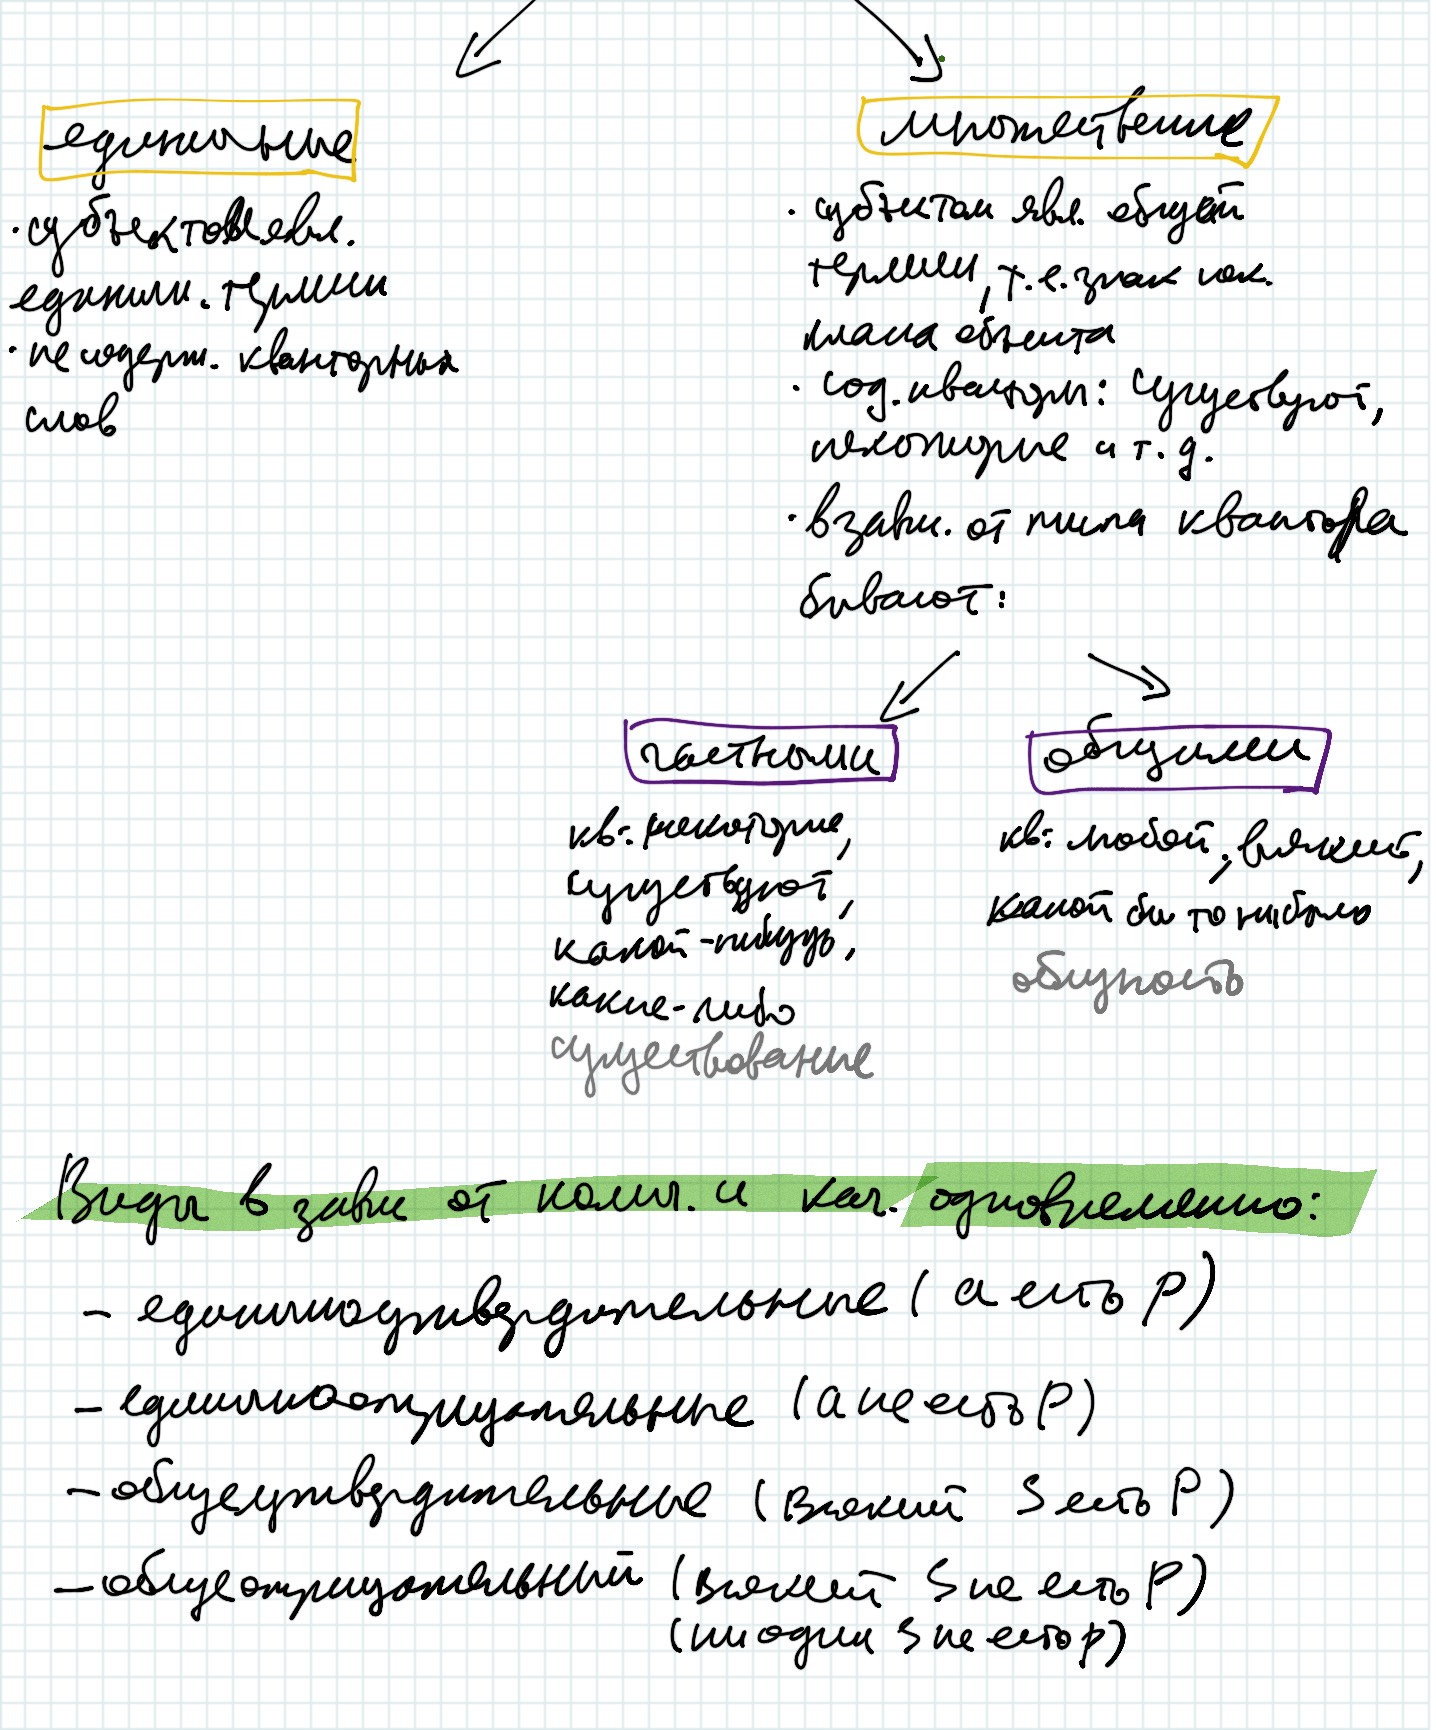 единичные
· субъектом явл.
единичн. термин
· не содерж. кванторных
слов
множественные
· субъектом явл. общий
термин, т.е. знак как.
класса объекта
· сод. кванторы: существуют,
некоторые и т.д.
· в зави. от типа квантора
бывают:
частными
кв: некоторые,
существуют,
какой-нибудь,
какие-либо
существование
общими
кв: любой, всякий,
какой бы то ни было
общность
Виды в зави от колич. и кач. одновременно:
- единичноутвердительные (а есть P)
- единичноотрицательные (а не есть P)
- общеутвердительные (Всякий S есть P)
- общеотрицательный (Всякий S не есть P)
(ни один S не есть P)